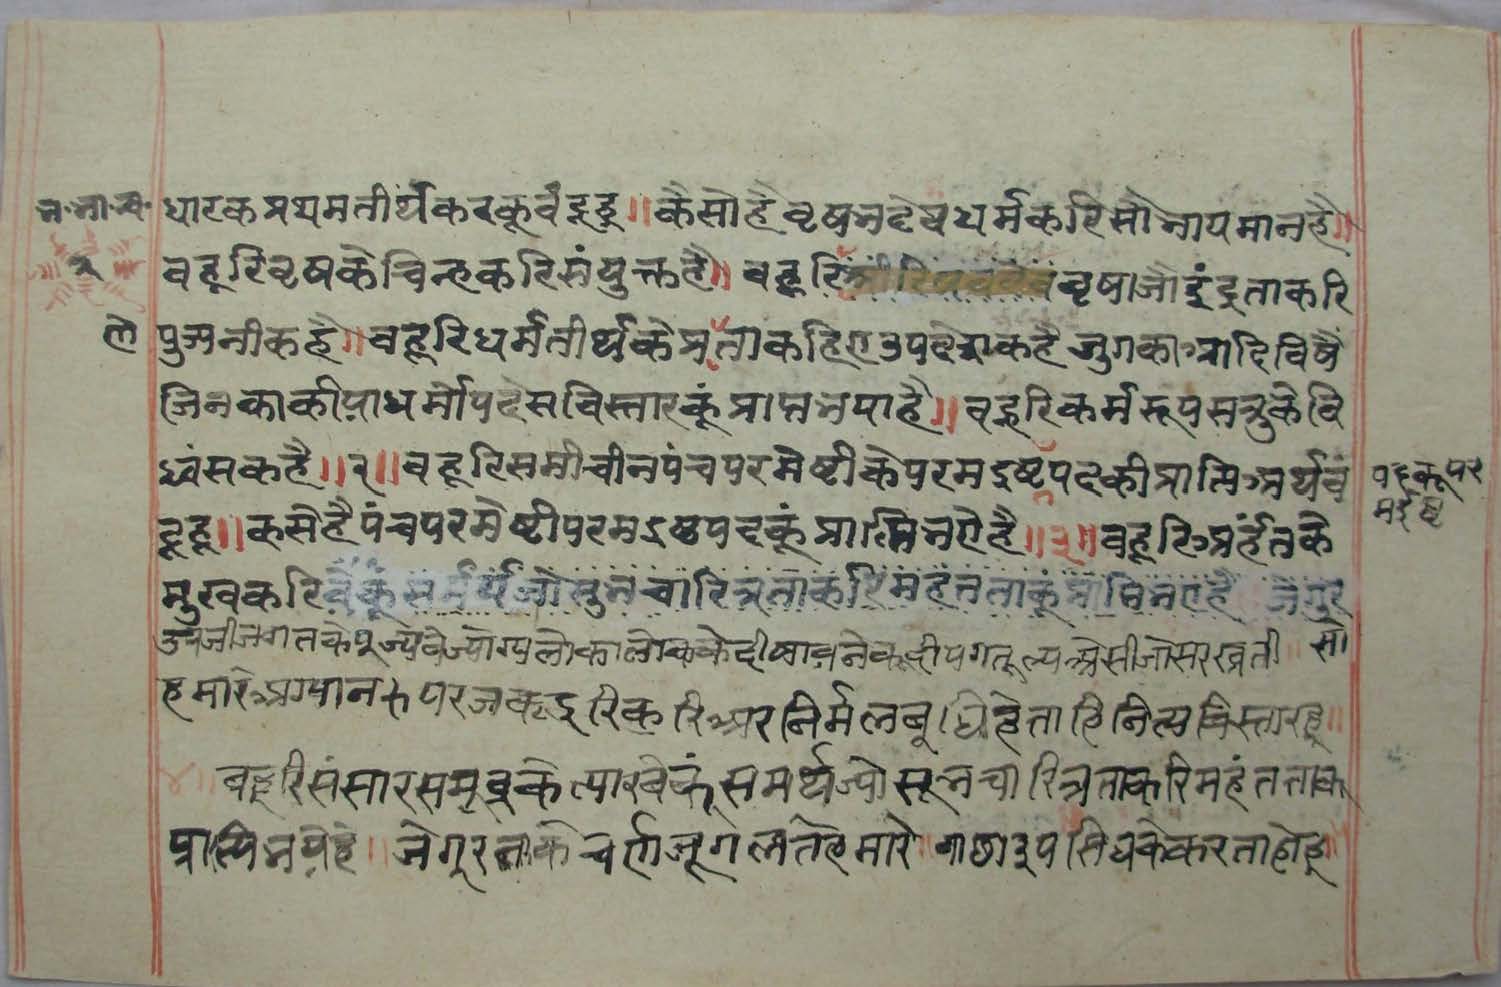 धारक प्रथमतीर्थंकरकूं वंदूहू ॥ कैसो है वृषभदेव धर्मकरि सोभायमान है ॥
बहूरि वृषके चिन्हकरि संयुक्त है ॥ बहूरि वृषा जो इंद्र ताकरि
पुजनीक है ॥ बहूरि धर्मतीर्थके कहिए उपदेसक है जुगका आदिविषै
जिनका कीया धर्मोपदेस विस्तारकूं प्राप्त भया है ॥ बहूरि कर्मरूप सत्रुके वि
ध्वंसक है ॥२॥ बहूरि समीचीन पंचपरमेष्टीके परमइष्ट पदकी प्राप्ति अर्थ वं
पदकू पर
मईष्ट
दूहू ॥ कसे है पंचपरमेष्टी परमइष्ट पदकूं प्राप्ति भऐ है ॥३॥ बहूरि अर्हंतके
मुखकरि वेकूं समर्थ जो सुभ चारित्र ताकरि महंतताकूं प्राप्ति भए है जे गुर
उपजी जगतके पूज्यवे ज्योग्य लोकालोकके दीषावनेकू दीपग तूल्य ऐसी जो सरस्वती सो
हमारे अग्यानरुप रजकू दूरि करि अर निर्मल बुधि है ताहि नित्य विस्तारहू ॥
४॥ बहूरि संसारसमूद्रके त्यारवेकूं समर्थ ज्यो सूभ चारित्र ताकरि महंतताकू
प्राप्ति भये है ॥ जे गूर ताके चर्ण जूगल ते हमारे वांछारुप सिधके करता होहू ॥